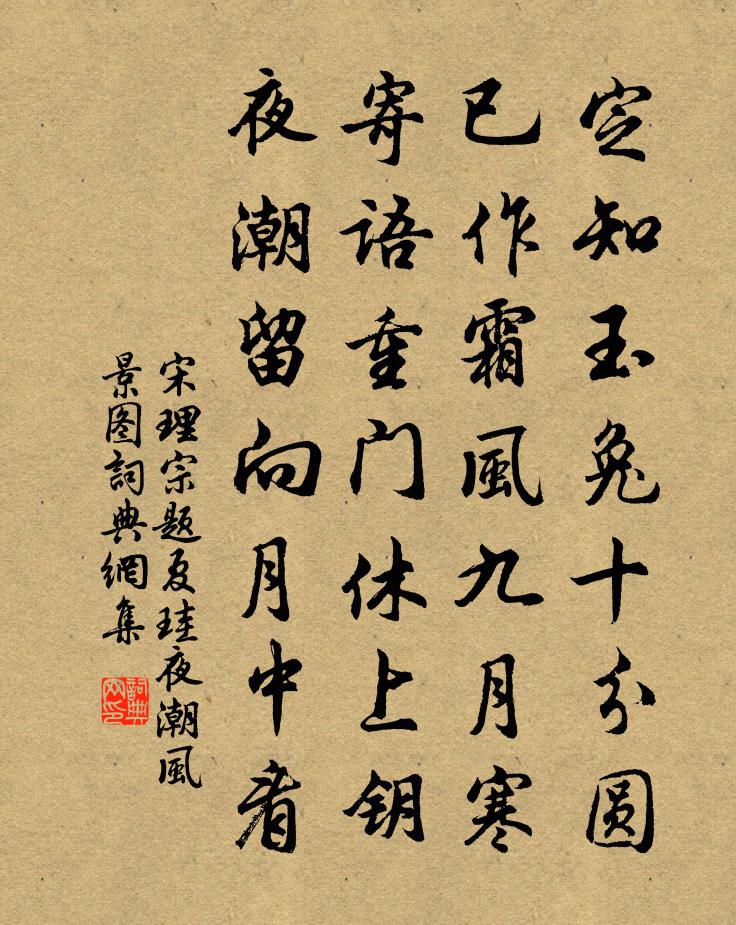 定知玉兔十分圆
已作霜風九月寒
寄语重门休上钥
夜潮留向月中看
宋理宗题夏珪夜潮風
景图詞典網集
詞典网印